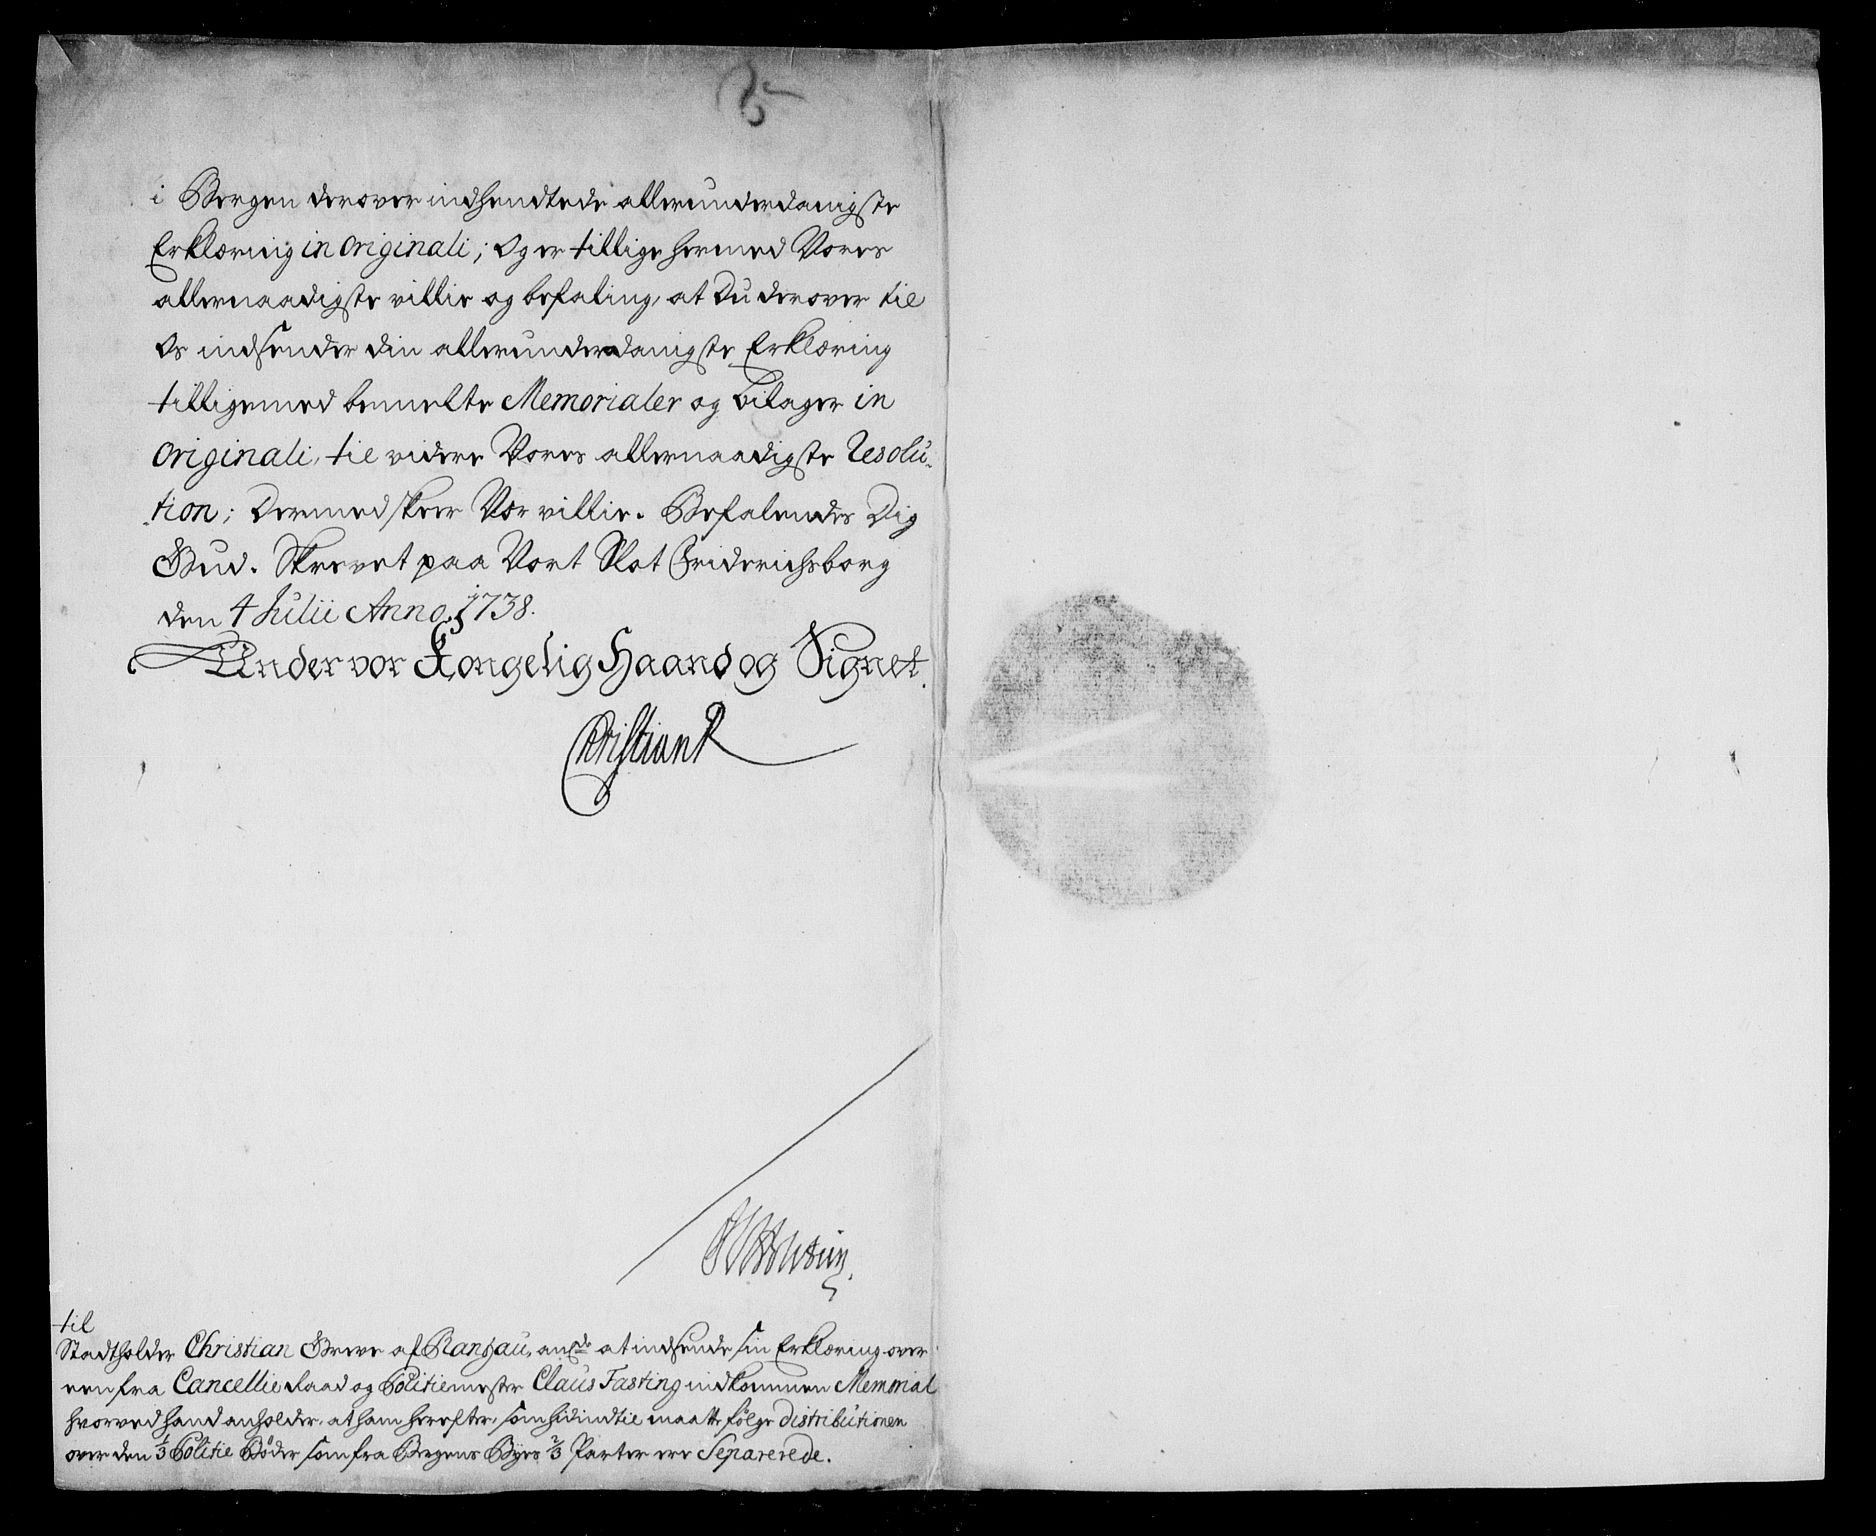 i Bergen derover indhendtede allerunderdanigste
Erklæring in originali; Og er tillige hermed Vores
allernaadigste villie og befaling, at Du derover til
Os indsender din allerunderdanigste Erklæring
tilligemed bemelte Memorialer og bilager in
originali, til videre Vores allernaadigste Resolu-
tion; Dermed skeer Vor villie. Befalendes Dig
Gud. Skrevet paa Vort Slot Friderichsborg
den 4 Julii Anno 1738.
Under vor Kongelig Haand og Signet.
Christian R
til
Stadtholder Christian Greve af Ranzau, an de at indsende sin Erklæring over
een fra Cancellie Raad og Politiemester Claus Fasting indkommen Memorial
hvorved hand anholder, at ham herefter, som hidindtil maatte følge distributionen
over den 1/3 Politie Bøder som fra Bergens Byes 2/3 Parter ere Separerede.